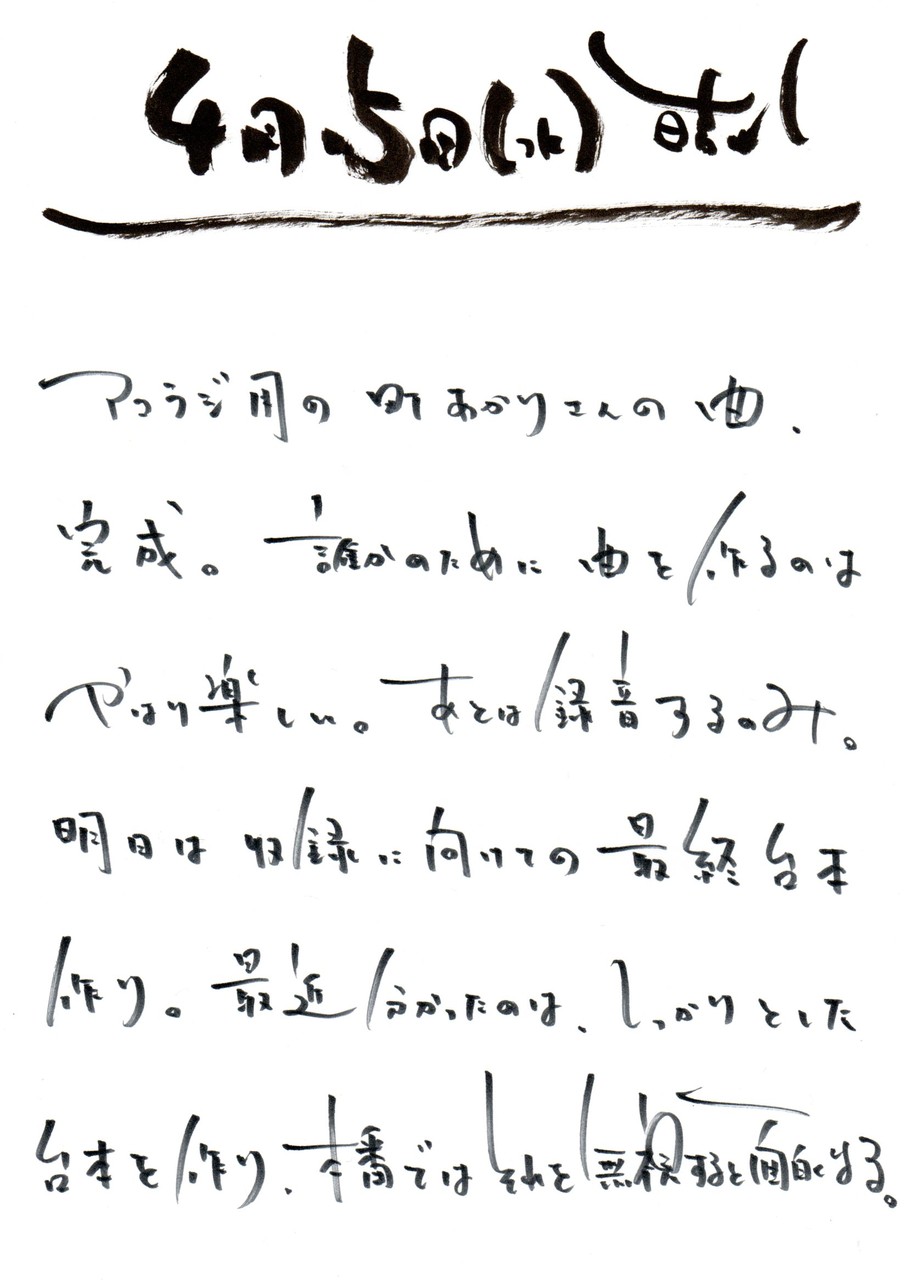 4月5日(水) 晴れ
アコラジ用の町あかりさんの曲、
完成。誰かのために曲を作るのは
やはり楽しい。あとは録音するのみ。
明日は収録に向けての最終台本
作り。最近分かったのは、しっかりとした
台本を作り、本番ではそれを無視すると面白くなる。